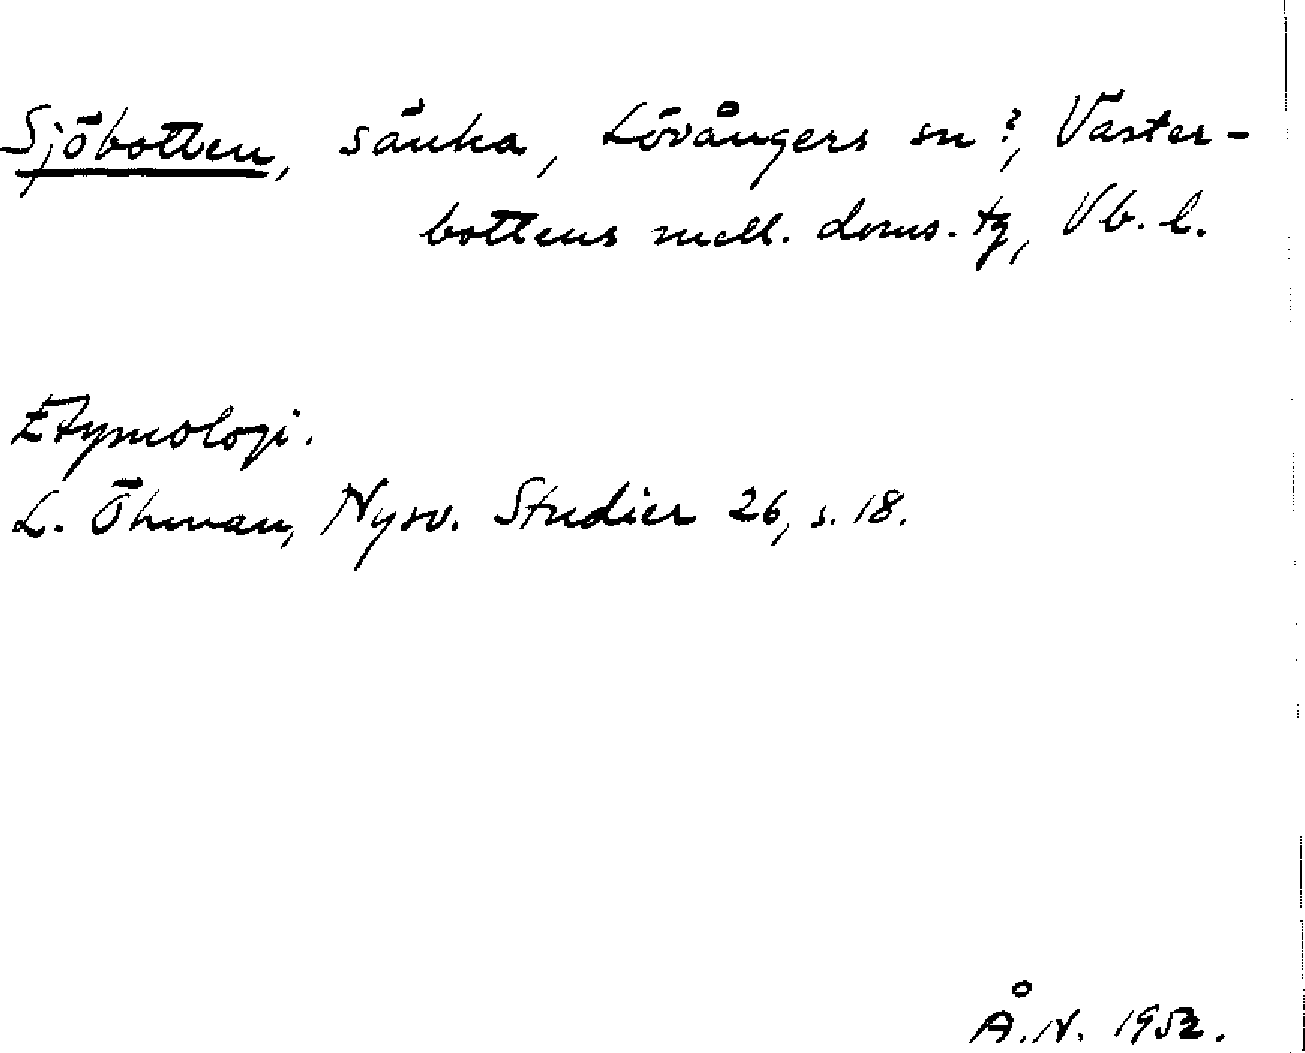 Sjöbotten, sänka, Lövångers sn?, Väster-
bottens mell. doms. tg, Vb. l.
Etymologi.
L. Öhman, Nysv. Studier 26, s. 18.
Å.N. 1952.